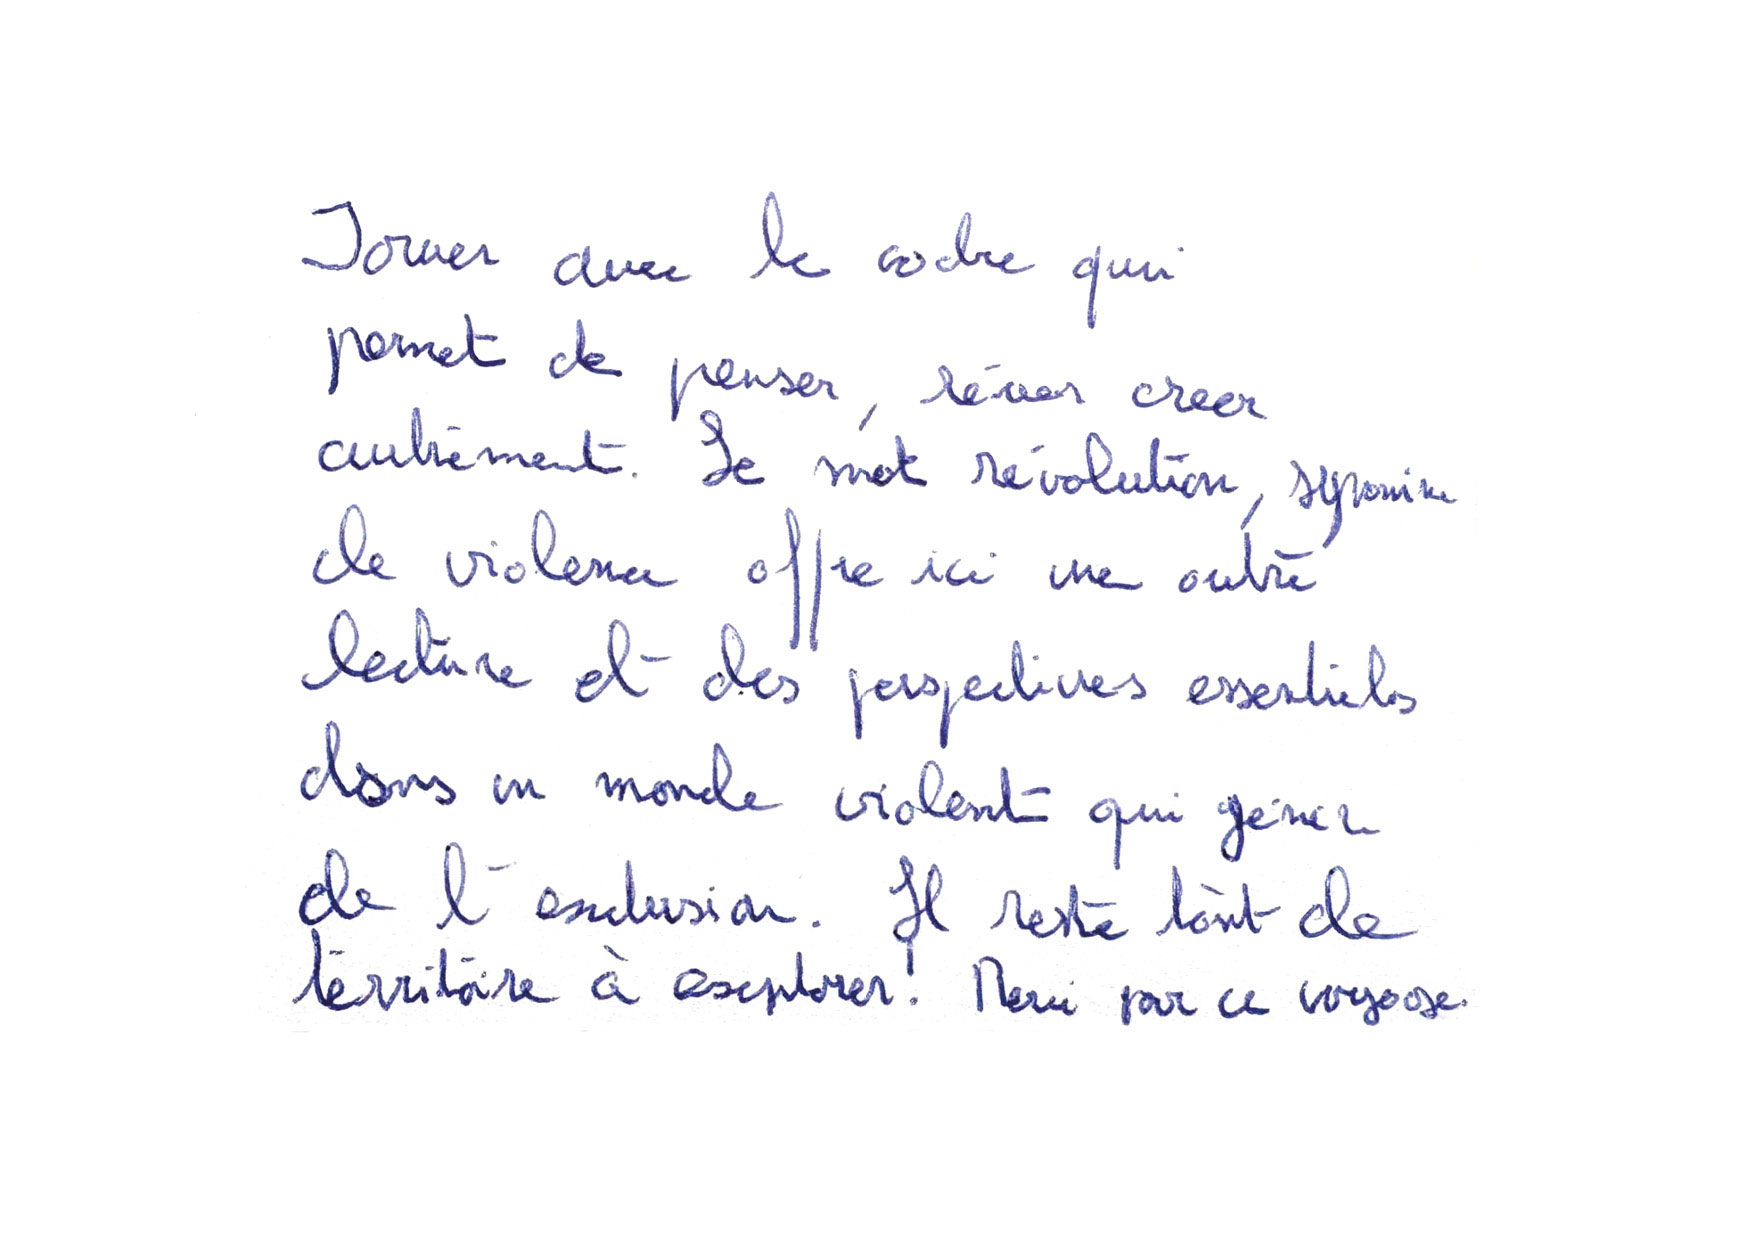 Jouer avec le cadre qui
permet de penser, rêver creer
autrement. Le mot révolution, synonime
de violence offre ici une autre
lecture et des perspectives essentiels
dans un monde violent qui génère
de l'exclusion. Il reste tant de
territoire à explorer! Merci par ce voyage.